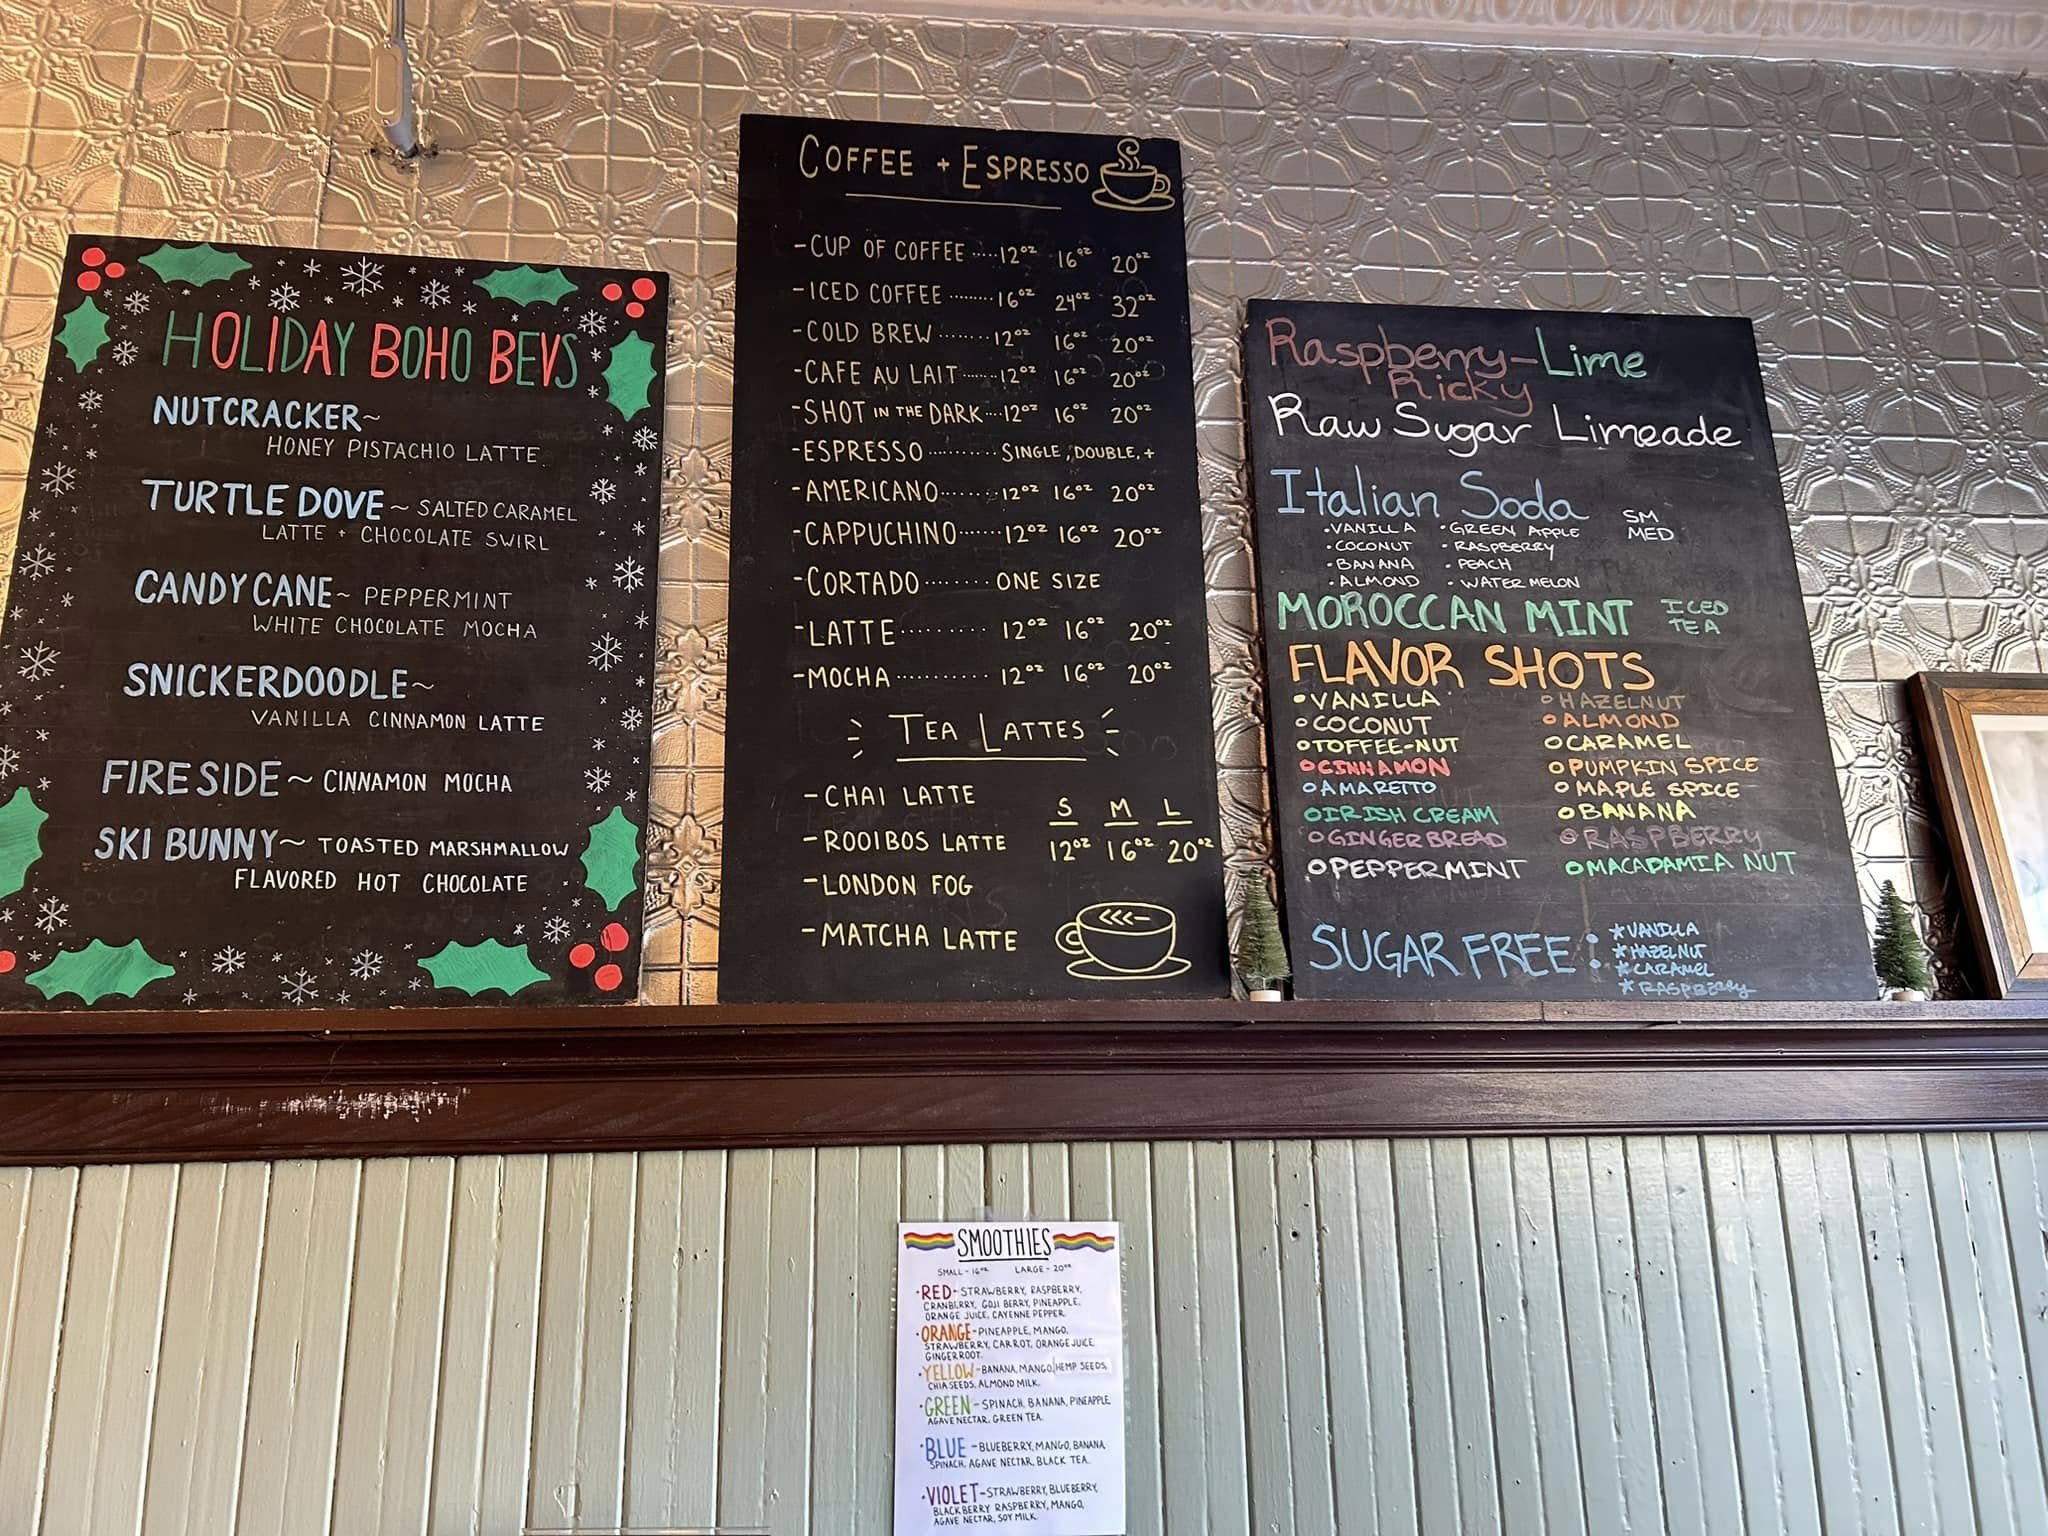 HOLIDAY BOHO BEVS
NUTCRACKER~
HONEY PISTACHIO LATTE
TURTLE DOVE ~ SALTED CARAMEL
LATTE + CHOCOLATE SWIRL
CANDY CANE ~ PEPPERMINT
WHITE CHOCOLATE MOCHA
SNICKERDOODLE~
VANILLA CINNAMON LATTE
FIRESIDE ~ CINNAMON MOCHA
SKI BUNNY ~ TOASTED MARSHMALLOW
FLAVORED HOT CHOCOLATE
COFFEE + ESPRESSO
-CUP OF COFFEE.....12oz 16oz 20oz
-ICED COFFEE........16oz 24oz 32oz
-COLD BREW.......12oz 16oz 20oz
-CAFE AU LAIT......12oz 16oz 20oz
-SHOT IN THE DARK...12oz 16oz 20oz
-ESPRESSO.......... SINGLE, DOUBLE, +
-AMERICANO.......12oz 16oz 20oz
-CAPPUCHINO......12oz 16oz 20oz
-CORTADO........ ONE SIZE
-LATTE.......... 12oz 16oz 20oz
-MOCHA........... 12oz 16oz 20oz
TEA LATTES
-CHAI LATTE
-ROOIBOS LATTE
-LONDON FOG
-MATCHA LATTE
S M L
12oz 16oz 20oz
Raspberry-Lime
Ricky
Raw Sugar Limeade
Italian Soda
SM
MED
•VANILLA •GREEN APPLE
•COCONUT •RASPBERRY
•BANANA •PEACH
•ALMOND •WATERMELON
MOROCCAN MINT ICED
TEA
FLAVOR SHOTS
○VANILLA ○HAZELNUT
○COCONUT ○ALMOND
○TOFFEE-NUT ○CARAMEL
○CINNAMON ○PUMPKIN SPICE
○AMARETTO ○MAPLE SPICE
○IRISH CREAM ○BANANA
○GINGERBREAD ○RASPBERRY
○PEPPERMINT ○MACADAMIA NUT
SUGAR FREE: *VANILLA
*HAZELNUT
*CARAMEL
*RASPBERRY
SMOOTHIES
SMALL-16oz LARGE-20oz
•RED-STRAWBERRY, RASPBERRY,
CRANBERRY, GOJI BERRY, PINEAPPLE,
ORANGE JUICE, CAYENNE PEPPER.
•ORANGE-PINEAPPLE, MANGO,
STRAWBERRY, CARROT, ORANGE JUICE,
GINGERROOT.
•YELLOW-BANANA, MANGO, HEMP SEEDS,
CHIA SEEDS, ALMOND MILK.
•GREEN-SPINACH, BANANA, PINEAPPLE,
AGAVE NECTAR, GREEN TEA.
•BLUE-BLUEBERRY, MANGO, BANANA,
SPINACH, AGAVE NECTAR, BLACK TEA.
•VIOLET-STRAWBERRY, BLUEBERRY,
BLACKBERRY, RASPBERRY, MANGO,
AGAVE NECTAR, SOY MILK.